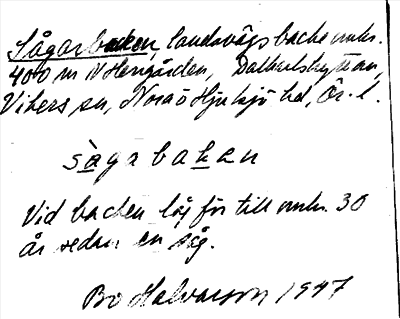 Sågarbacken, landsvägsbacke omkr.
400 m N Herrgården, Dalkarlshyttan,
Vikers sn, Nora o Hjulsjö hd, Ör. l.
sågabakan
Vid backen låg för till omkr. 30
år sedan en såg.
Bo Halvarson 1947